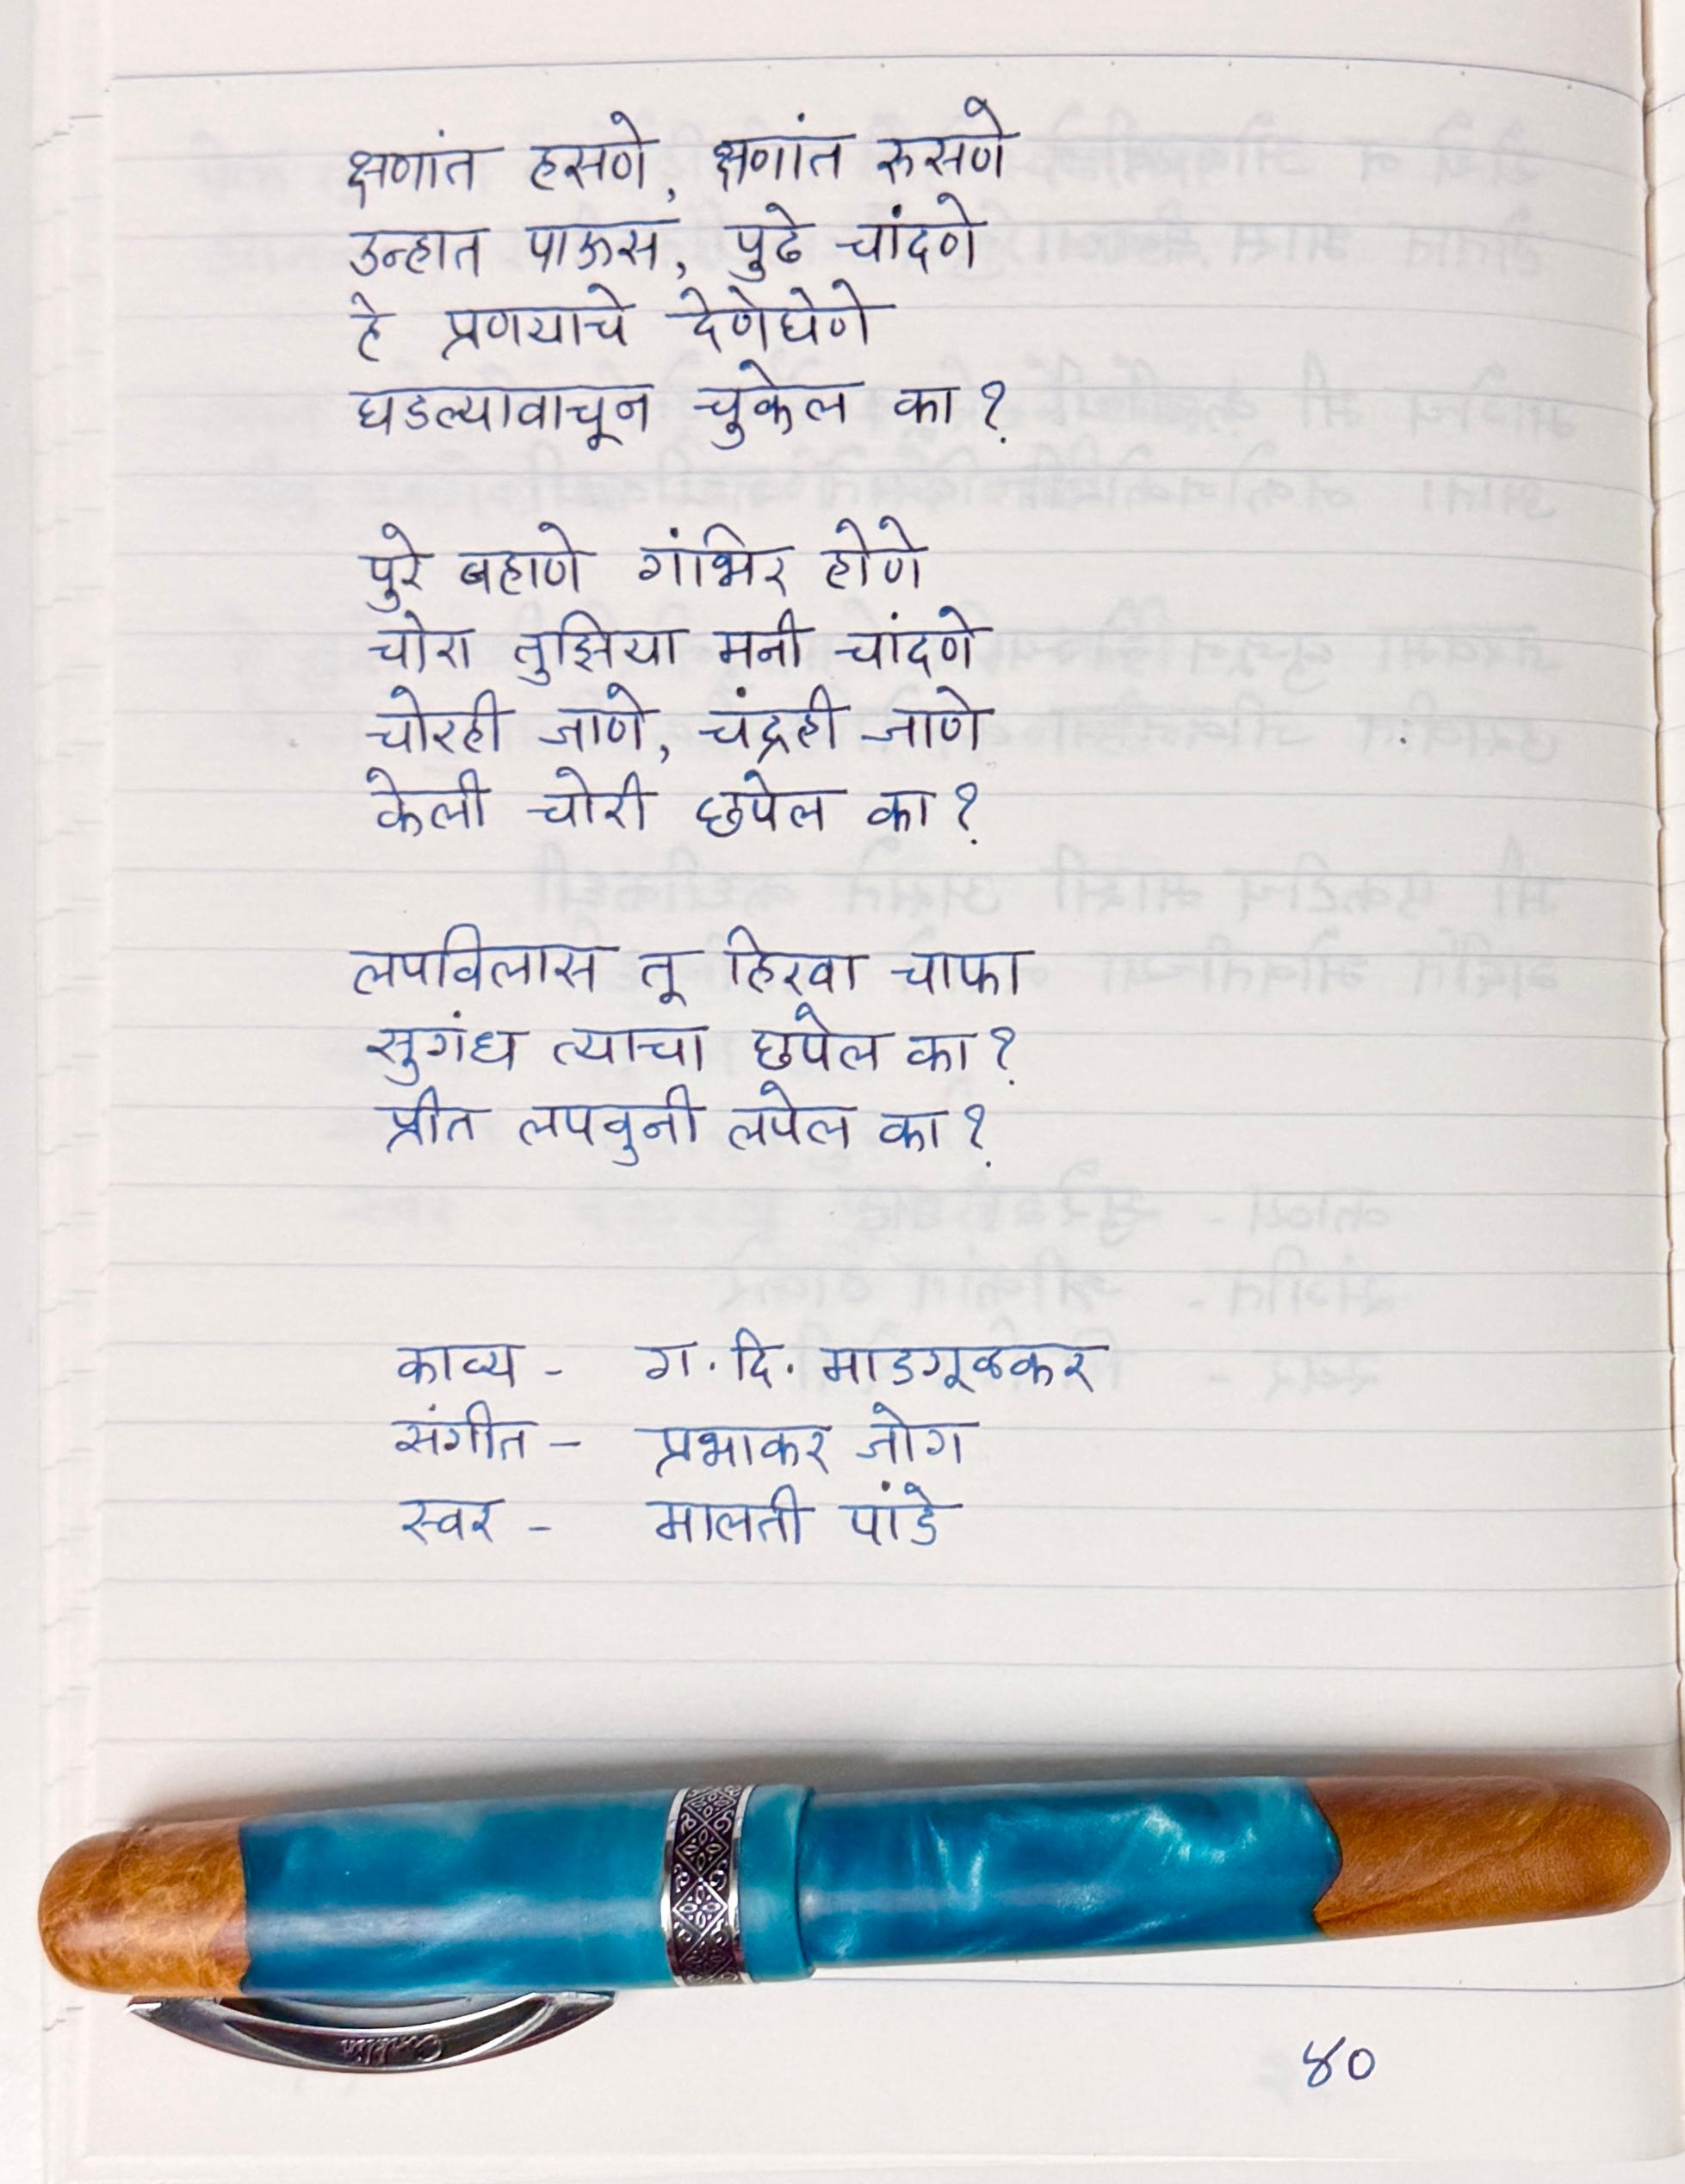 क्षणांत हसणे, क्षणांत रुसणे
उन्हात पाऊस, पुढे चांदणे
हे प्रणयाचे देणेघेणे
घडल्यावाचून चुकेल का?
पुरे बहाणे गंभिर होणे
चोरा तुझिया मनी चांदणे
चोरही जाणे, चंद्रही जाणे
केली चोरी छपेल का?
लपविलास तू हिरवा चाफा
सुगंध त्याचा छपेल का?
प्रीत लपवुनी लपेल का?
काव्य - ग. दि. माडगूळकर
संगीत - प्रभाकर जोग
स्वर - मालती पांडे
Conklin
४०